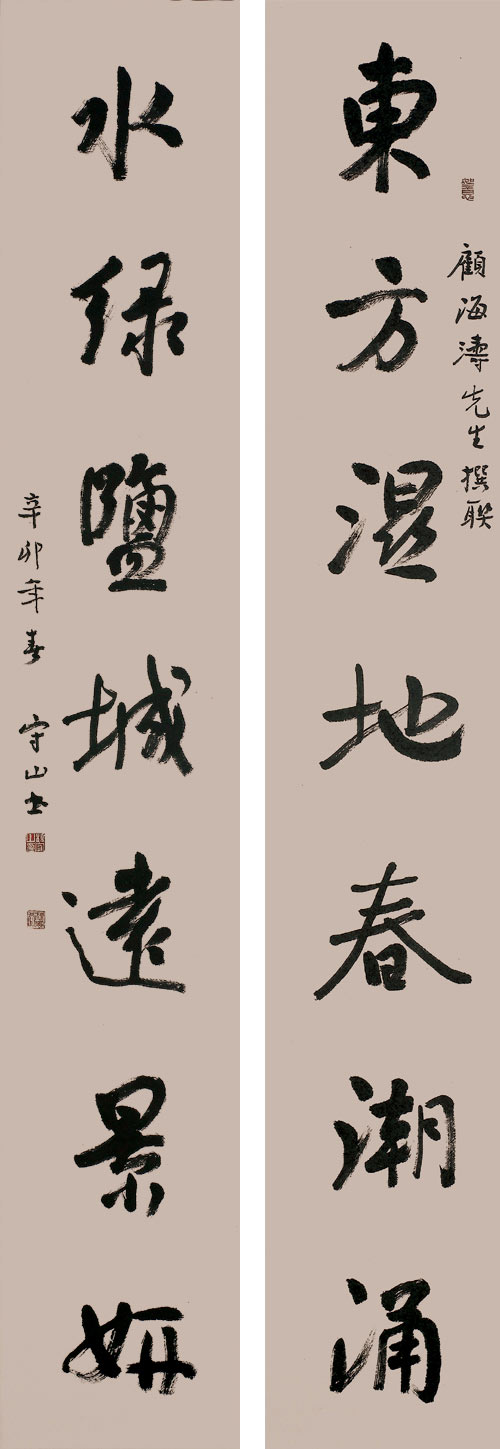 東方湿地春潮涌
顧海濤先生撰聯
水緑鹽城遠景妍
辛卯年春 守山书